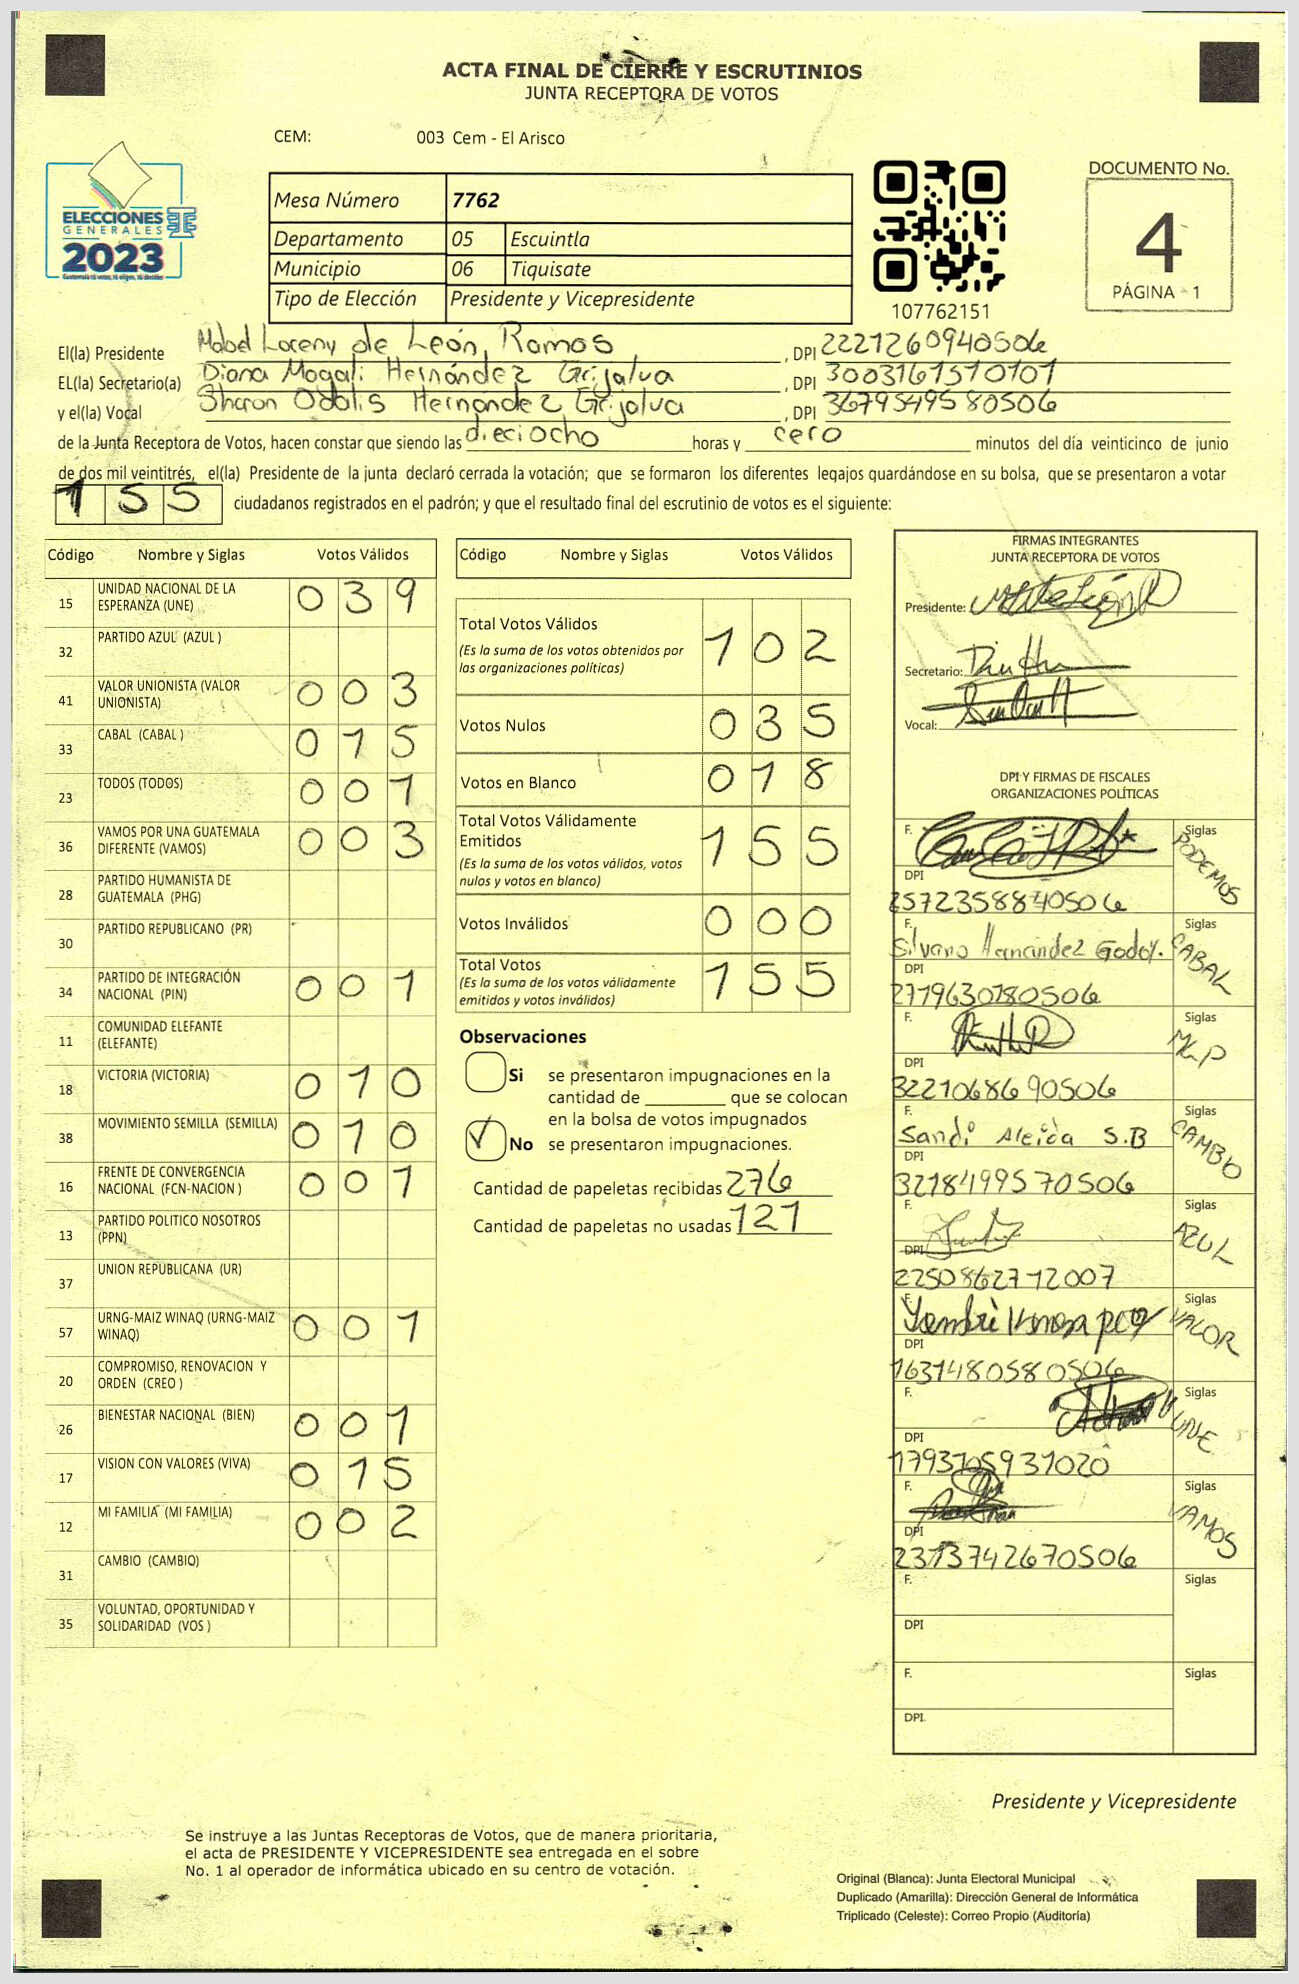 ACTA FINAL DE CIERRE Y ESCRUTINIOS
JUNTA RECEPTORA DE VOTOS
CEM: 003 Cem - El Arisco
ELECCIONES
GENERALES
2023
Mesa Número 7762
Departamento 05 Escuintla
Municipio 06 Tiquisate
Tipo de Elección Presidente y Vicepresidente
107762151
DOCUMENTO No.
4
PÁGINA - 1
El(la) Presidente Mabel Loreny de León Ramos, DPI 2221260940506
EL(la) Secretario(a) Diana Magali Hernández Grijalva, DPI 3003161510101
y el(la) Vocal Sharon Odalis Hernandez Grijalva, DPI 3679549580506
de la Junta Receptora de Votos, hacen constar que siendo las dieciocho horas y cero minutos del día veinticinco de junio
de dos mil veintitrés, el(la) Presidente de la junta declaró cerrada la votación; que se formaron los diferentes legajos quardándose en su bolsa, que se presentaron a votar
155 ciudadanos registrados en el padrón; y que el resultado final del escrutinio de votos es el siguiente:
Código Nombre y Siglas Votos Válidos
15 UNIDAD NACIONAL DE LA ESPERANZA (UNE) 039
32 PARTIDO AZUL (AZUL )
41 VALOR UNIONISTA (VALOR UNIONISTA) 003
33 CABAL (CABAL ) 015
23 TODOS (TODOS) 001
36 VAMOS POR UNA GUATEMALA DIFERENTE (VAMOS) 003
28 PARTIDO HUMANISTA DE GUATEMALA (PHG)
30 PARTIDO REPUBLICANO (PR)
34 PARTIDO DE INTEGRACIÓN NACIONAL (PIN) 001
11 COMUNIDAD ELEFANTE (ELEFANTE)
18 VICTORIA (VICTORIA) 010
38 MOVIMIENTO SEMILLA (SEMILLA) 010
16 FRENTE DE CONVERGENCIA NACIONAL (FCN-NACION ) 001
13 PARTIDO POLITICO NOSOTROS (PPN)
37 UNION REPUBLICANA (UR)
57 URNG-MAIZ WINAQ (URNG-MAIZ WINAQ) 001
20 COMPROMISO, RENOVACION Y ORDEN (CREO )
26 BIENESTAR NACIONAL (BIEN) 001
17 VISION CON VALORES (VIVA) 015
12 MI FAMILIA (MI FAMILIA) 002
31 CAMBIO (CAMBIO)
35 VOLUNTAD, OPORTUNIDAD Y SOLIDARIDAD (VOS )
Código Nombre y Siglas Votos Válidos
Total Votos Válidos 102
(Es la suma de los votos obtenidos por
las organizaciones políticas)
Votos Nulos 035
Votos en Blanco 018
Total Votos Válidamente
Emitidos 155
(Es la suma de los votos válidos, votos
nulos y votos en blanco)
Votos Inválidos 000
Total Votos 155
(Es la suma de los votos válidamente
emitidos y votos inválidos)
Observaciones
Si se presentaron impugnaciones en la
cantidad de ________ que se colocan
en la bolsa de votos impugnados
No se presentaron impugnaciones.
Cantidad de papeletas recibidas 276
Cantidad de papeletas no usadas 121
FIRMAS INTEGRANTES
JUNTA RECEPTORA DE VOTOS
Presidente:
Secretario:
Vocal:
DPI Y FIRMAS DE FISCALES
ORGANIZACIONES POLÍTICAS
F. Siglas PODEMOS
DPI 2572358840506
F. Silvano Hernández Godoy. Siglas CABAL
DPI 2719630180506
F. Siglas MLP
DPI 3221068690506
F. Sandi Aleida S.B Siglas CAMBIO
DPI 3218499570506
F. Siglas AZUL
DPI 2250862712007
F. Siglas VALOR
DPI 1631480580506
F. Siglas UNE
DPI 1793105931020
F. Siglas VAMOS
DPI 2313742670506
F. Siglas
DPI
F. Siglas
DPI.
Presidente y Vicepresidente
Se instruye a las Juntas Receptoras de Votos, que de manera prioritaria,
el acta de PRESIDENTE Y VICEPRESIDENTE sea entregada en el sobre
No. 1 al operador de informática ubicado en su centro de votación.
Original (Blanca): Junta Electoral Municipal
Duplicado (Amarilla): Dirección General de Informática
Triplicado (Celeste): Correo Propio (Auditoría)